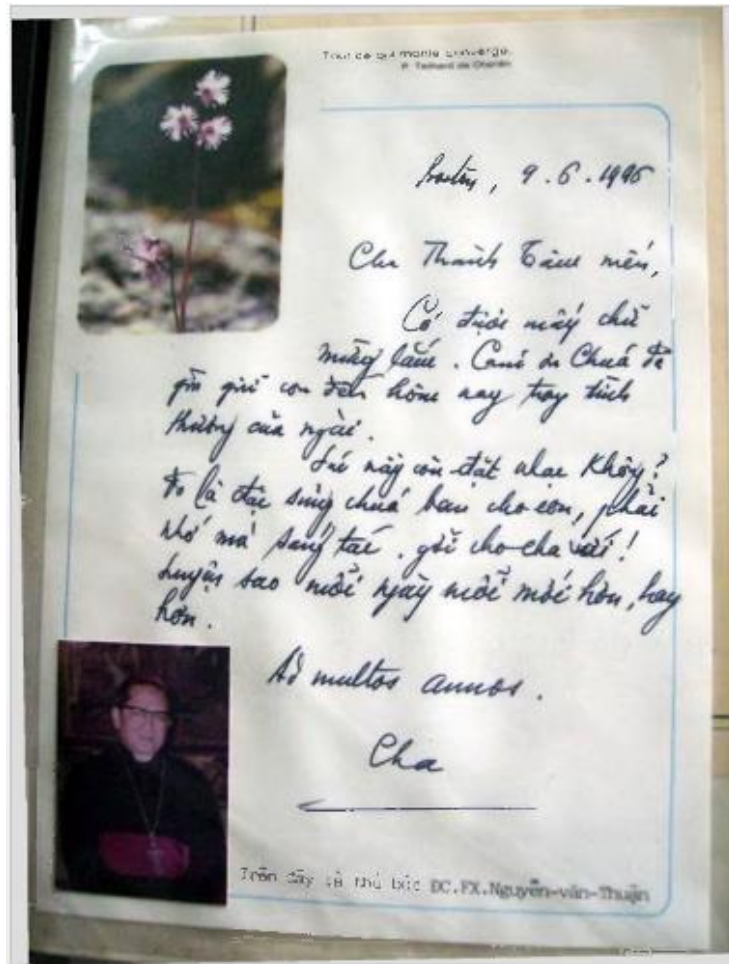 Tout ce qui monte converge.
P. Teilhard de Chardin
Boston, 9.6.1996
Cha Thành Tâm mến,
Có được mấy chữ
mừng lắm. Cám ơn Chúa đã
gìn giữ con đến hôm nay trong tình
thương của ngài.
Lúc này còn đặt nhạc không?
Đó là đặc sủng chúa ban cho con, phải
nhớ mà sáng tác, gởi cho cha với!
Luyện sao mỗi ngày mỗi mới hơn, hay
hơn.
Ad multos annos.
Cha
Trên đây là thủ bút ĐC.FX.Nguyễn-văn-Thuận